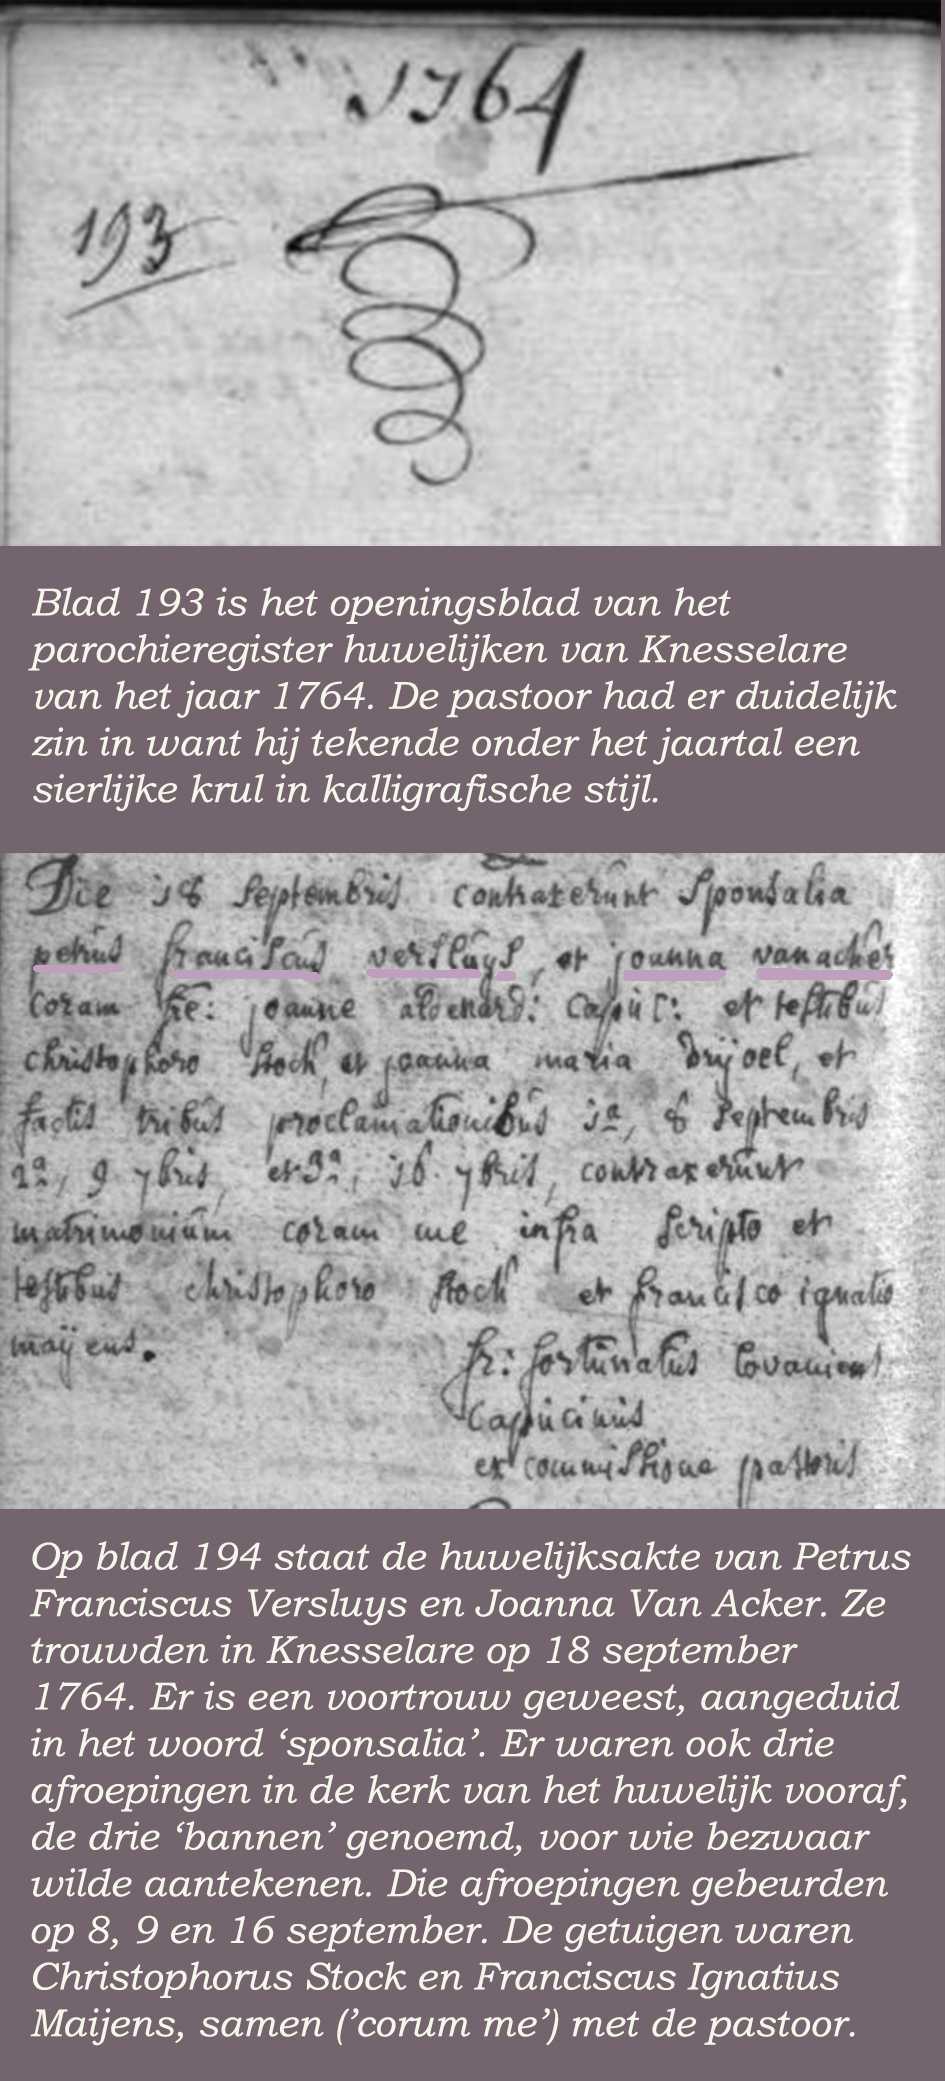 1764
193
Blad 193 is het openingsblad van het
parochieregister huwelijken van Knesselare
van het jaar 1764. De pastoor had er duidelijk
zin in want hij tekende onder het jaartal een
sierlijke krul in kalligrafische stijl.
Die 18 Septembris contraxerunt Sponsalia
petrus franciscus versluys, et joanna vanacker
coram fr: joanne et testibus
christophoro stock, et joanna maria et
factis tribus proclamationibus 1a, 8 Septembris
2a, 9 7bris, et 3a, 16 7bris, contraxerunt
matrimonium coram me infra scripto et
testibus christophoro stock et francisco ignatio
maijens.
fr: fortunatus
Capucinus
ex commissione pastoris
Op blad 194 staat de huwelijksakte van Petrus
Franciscus Versluys en Joanna Van Acker. Ze
trouwden in Knesselare op 18 september
1764. Er is een voortrouw geweest, aangeduid
in het woord ‘sponsalia’. Er waren ook drie
afroepingen in de kerk van het huwelijk vooraf,
de drie ‘bannen’ genoemd, voor wie bezwaar
wilde aantekenen. Die afroepingen gebeurden
op 8, 9 en 16 september. De getuigen waren
Christophorus Stock en Franciscus Ignatius
Maijens, samen (’corum me’) met de pastoor.